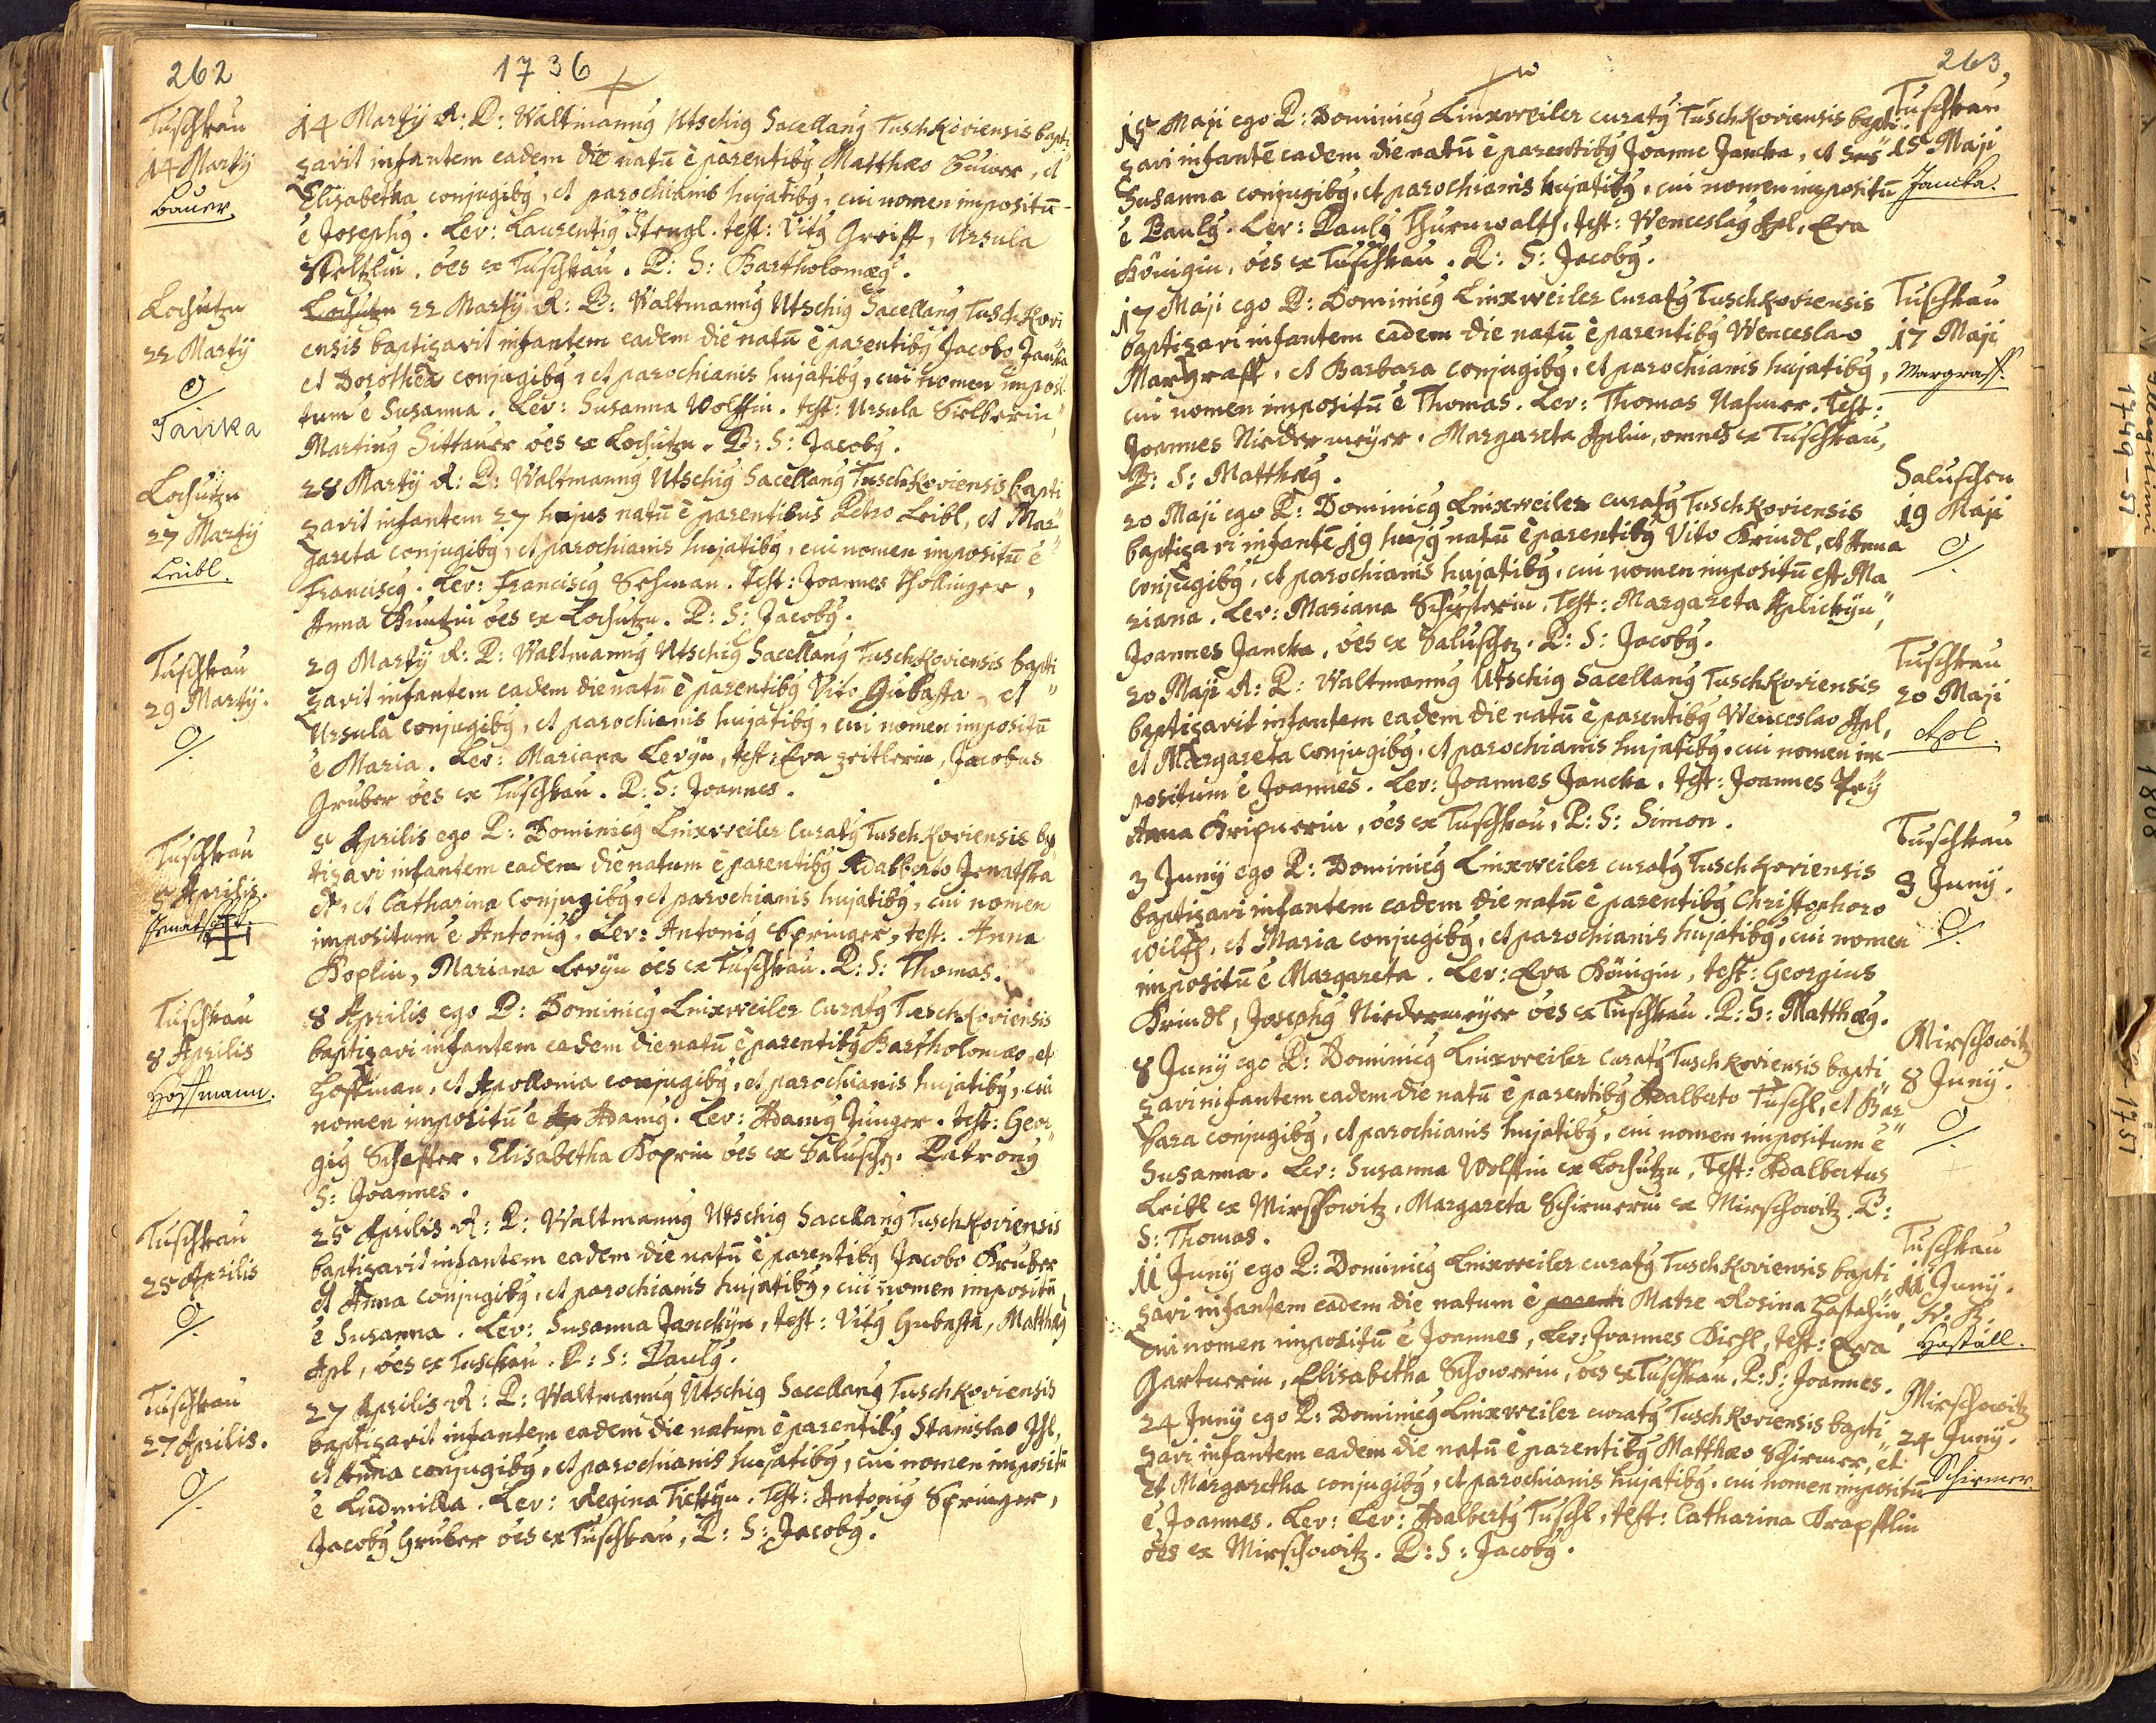 262
1736
Tuschkau
14 Martÿ
Bauer
14 Martÿ R: P: Waltmannꝰ Utschig Sacellanꝰ Tuschkoviensis bapti
zavit infantem eadem die natū è parentibꝰ Matthæo Bauer, et
Elisabetha conjugibꝰ, et parochianis hujatibꝰ, cui nomen impositū
ē Josephꝰ. Lev: Laurentiꝰ Stengl. test: Vitꝰ Greiff, Ursula
oēs ex Tuschkau. P: S: Bartholomæꝰ.
Lochutzn
22 Martÿ
Janka
Lochutzn 22 Martÿ R: P: Waltmannꝰ Utschig Sacellanꝰ Tuschkovi
ensis baptizavit infantem eadem die natū è parentibꝰ Jacobo Janka
et Dorothea conjugibꝰ, et parochianis hujatibꝰ, cui nomen imposi
tum ē Susanna. Lev: Susanna Wolffin. test: Ursula Sielberin,
Martinꝰ Sittauer oēs ex Lochutzn. P: S: Jacobꝰ.
Lochutzn
27 Martÿ
Leibl.
28 Martÿ R: P: Waltmannꝰ Utschig Sacellanꝰ Tuschkoviensis bapti
zavit infantem 27 hujus natū è parentibus Petro Leibl, et Mar
gareta conjugibꝰ, et parochianis hujatibꝰ, cui nomen impositū ē
Franciscꝰ. Lev: Franciscꝰ Sehman. test: Joannes Hollinger,
Anna Kuntzin oēs ex Lochutzn. P: S: Jacobꝰ.
Tuschkau
29 Martÿ.
29 Martÿ R: P: Waltmannꝰ Utschig Sacellanꝰ Tuschkoviensis bapti
zavit infantem eadem die natū è parentibꝰ Vito Gubasta, et
Ursula conjugibꝰ, et parochianis hujatibꝰ, cui nomen impositū
ē Maria. Lev: Mariana Levÿn, test: Eva Zeitlerin, Jacobus
Gruber oēs ex Tuschkau. P: S: Joannes.
Tuschkau
5 Aprilis.
5 Aprilis ego P: Dominicꝰ Linxweiler Curatꝰ Tuschkoviensis bap
tizavi infantem eadem die natum è parentibꝰ Adalberto Jenatska
et, et Catharina Conjugibꝰ, et parochianis hujatibꝰ, cui nomen
impositum ē Antoniꝰ. Lev: Antoniꝰ Springer, test: Anna
Koplin, Mariana Levÿn oēs ex Tuschkau. P: S: Thomas.
Tuschkau
8 Aprilis
Hoffmann.
8 Aprilis ego P: Dominicꝰ Linxweiler Curatꝰ Tuschkoviensis
baptizavi infantem eadem die natū è parentibꝰ Bartholomæo et
Hoffman, et Apollonia conjugibꝰ, et parochianis hujatibꝰ, cui
nomen impositū ē Adamꝰ. Lev: Adamꝰ Junger. test: Geor
giꝰ Schester, Elisabetha Koprin oēs ex Saluschz. Patronꝰ
S: Joannes.
Tuschkau
25 Aprilis
25 Aprilis R: P: Waltmannꝰ Utschig Sacellanꝰ Tuschkoviensis
baptizavit infantem eadem die natū è parentibꝰ Jacobo Kruber
et Anna conjugibꝰ, et parochianis hujatibꝰ, cui nomen impositū
ē Susanna. Lev: Susanna Janckÿn, test: Vitꝰ Gubasta, Matthæꝰ
Apl, oēs ex Tuschkau. P: S: Paulꝰ.
Tuschkau
27 Aprilis.
27 Aprilis R: P: Waltmannꝰ Utschig Sacellanꝰ Tuschkoviensis
baptizavit infantem eadem die natum è parentibꝰ Stanislao Ihl,
et Anna conjugibꝰ, et parochianis hujatibꝰ, cui nomen impositū
ē Ludmilla. Lev: Regina Tickÿn. Test: Antoniꝰ Springer,
Jacobꝰ Gruber oēs ex Tuschkau, P: S: Jacobꝰ.
263
Tuschkau
15 Maji
Jancka.
15 Maji ego P: Dominicꝰ Linxweiler curatꝰ Tuschkoviensis bapti
zavi infantē eadem die natū è parentibꝰ Joanne Jancka, et Sus
Susanna conjugibꝰ, et parochianis hujatibꝰ, cui nomen impositū
ē Paulꝰ. Lev: Paulꝰ Thurnwaldt, test: Wenceslaꝰ Apl, Eva
Königin, oēs ex Tuschkau. P: S: Jacobꝰ.
Tuschkau
17 Maji
Margraff.
17 Maji ego P: Dominicꝰ Linxweiler Curatꝰ Tuschkoviensis
baptizavi infantem eadem die natū è parentibꝰ Wenceslao
Margraff, et Barbara conjugibꝰ, et parochianis hujatibꝰ,
cui nomen impositū ē Thomas. Lev: Thomas Hafner. Test:
Joannes Niedermeÿer. Margareta Aplin, omnes ex Tuschkau,
P: S: Matthæꝰ.
Saluschen
19 Maji
20 Maji ego P: Dominicꝰ Linxweiler curatꝰ Tuschkoviensis
baptizavi infantē 19 hujꝰ natū è parentibꝰ Vito Krindl, et Anna
conjugibꝰ, et parochianis hujatibꝰ, cui nomen impositū est Ma
riana. Lev: Mariana Schusterin. Test: Margareta Aplickÿn,
Joannes Jancka, oēs ex Saluschz. P: S: Jacobꝰ.
Tuschkau
20 Maji
Apl.
20 Maji R: P: Waltmannꝰ Utschig Sacellanꝰ Tuschkoviensis
baptizavit infantem eadem die natū è parentibꝰ Wenceslao Apl,
et Margareta conjugibꝰ, et parochianis hujatibꝰ, cui nomen im
positum ē Joannes. Lev: Joannes Jancka, test: Joannes
Anna Kripnerin, oēs ex Tuschkau, P: S: Simon.
Tuschkau
3 Junÿ.
3 Junÿ ego P: Dominicꝰ Linxweiler curatꝰ Tuschkoviensis
baptizavi infantem eadem die natū è parentibꝰ Christophoro
Wiltz, et Maria conjugibꝰ, et parochianis hujatibꝰ, cui nomen
impositū ē Margareta. Lev: Eva Königin, test: Georgius
Krindl, Josephꝰ Niedermeÿer oēs ex Tuschkau. P: S: Matthæꝰ.
Mirschowitz
8 Junÿ.
8 Junÿ ego P: Dominicꝰ Linxweiler Curatꝰ Tuschkoviensis bapti
zavi infantem eadem die natū è parentibꝰ Adalberto Tuschl, et Bar
bara conjugibꝰ, et parochianis hujatibꝰ, cui nomen impositum ē
Susanna. Lev: Susanna Wolffin ex Lochutzn, Test: Adalbertus
Leibl ex Mirschowitz, Margareta Schirmerin ex Mirschowitz. P:
S: Thomas.
Tuschkau
11 Junÿ.
Hastall.
11 Junÿ ego P: Dominicꝰ Linxweiler curatꝰ Tuschkoviensis bapti
zavi infantem eadem die natum è parenti Matre Rosina Hastalin,
cui nomen impositū ē Joannes, Lev: Joannes Kischl, test: Eva
Gartnerin, Elisabetha Schowerin, oēs ex Tuschkau, P: S: Joannes.
Mirschowitz
24 Junÿ.
Schirmer.
24 Junÿ ego P: Dominicꝰ Linxweiler curatꝰ Tuschkoviensis bapti
zavi infantem eadem die natū è parentibꝰ Matthæo Schirmer, et
et Margaretha conjugibꝰ, et parochianis hujatibꝰ, cui nomen impositū
ē Joannes. Lev: Lev: Adalbertꝰ Tuschl, test: Catharina Krapfflin
oēs ex Mirschowitz. P: S: Jacobꝰ.
1749-51
1751